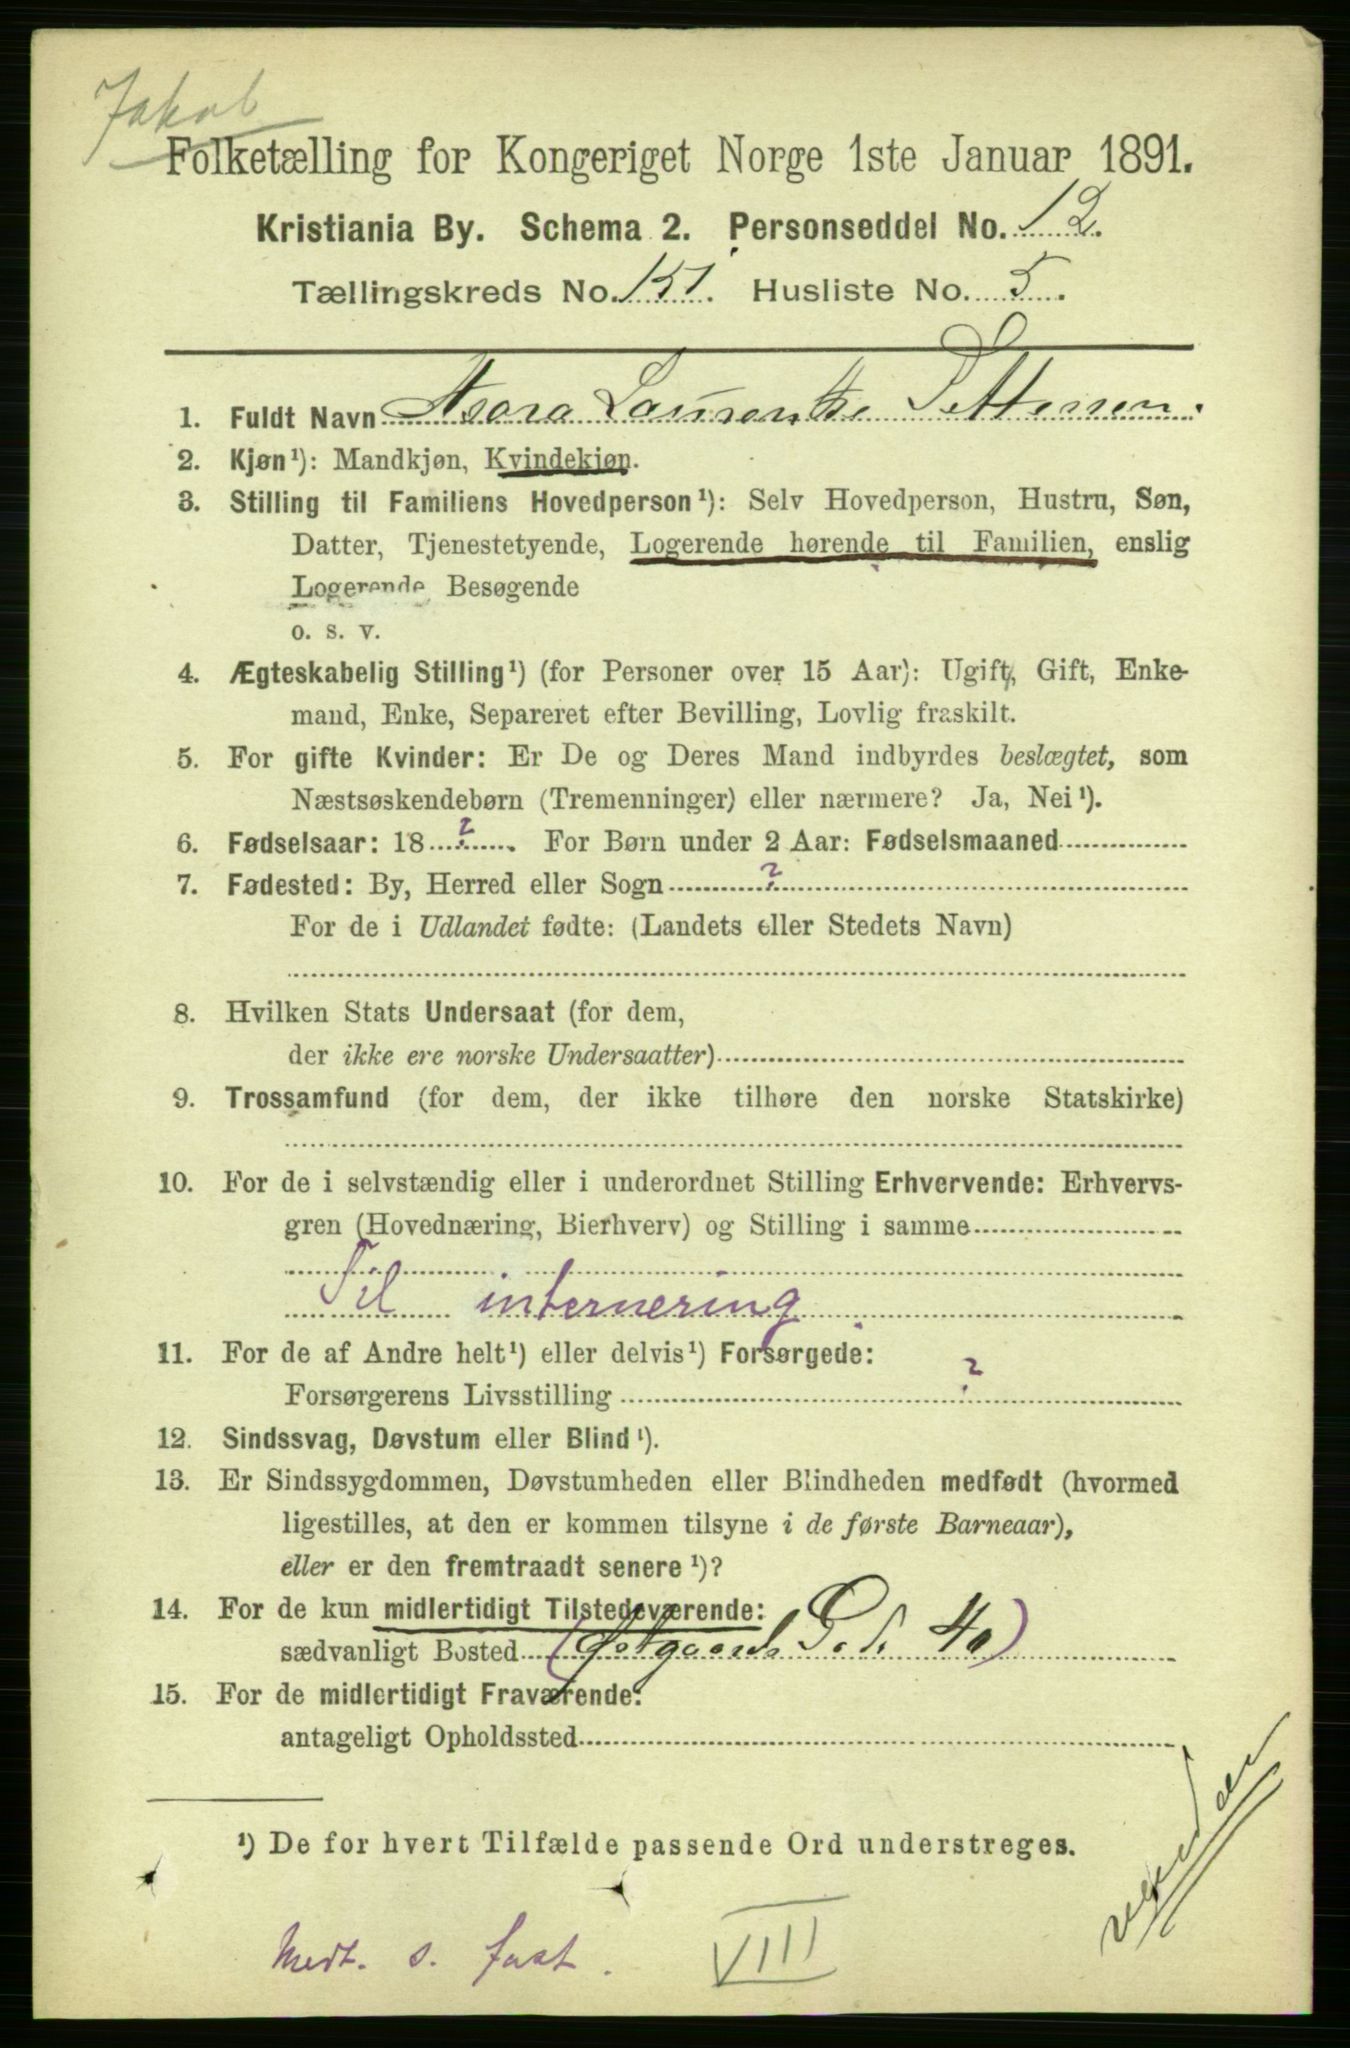 Jakob
Folketælling for Kongeriget Norge 1ste Januar 1891.
Kristiania By. Schema 2. Personseddel No. 12.
Tællingskreds No. 151. Husliste No. 5.
1. Fuldt Navn Laurentze
2. Kjøn¹): Mandkjøn, Kvindekjøn.
3. Stilling til Familiens Hovedperson¹): Selv Hovedperson, Hustru, Søn,
Datter, Tjenestetyende, Logerende hørende til Familien, enslig
Logerende, Besøgende
o. s. v.
4. Ægteskabelig Stilling¹) (for Personer over 15 Aar): Ugift, Gift, Enke-
mand, Enke, Separeret efter Bevilling, Lovlig fraskilt.
5. For gifte Kvinder: Er De og Deres Mand indbyrdes beslægtet, som
Næstsøskendebørn (Tremenninger) eller nærmere? Ja, Nei¹).
6. Fødselsaar: 18 ? . For Børn under 2 Aar: Fødselsmaaned
7. Fødested: By, Herred eller Sogn ?
For de i Udlandet fødte: (Landets eller Stedets Navn)
8. Hvilken Stats Undersaat (for dem,
der ikke ere norske Undersaatter)
9. Trossamfund (for dem, der ikke tilhøre den norske Statskirke)
10. For de i selvstændig eller i underordnet Stilling Erhvervende: Erhvervs-
gren (Hovednæring, Bierhverv) og Stilling i samme
Til internering
11. For de af Andre helt¹) eller delvis¹) Forsørgede:
Forsørgerens Livsstilling ?
12. Sindssvag, Døvstum eller Blind¹).
13. Er Sindssygdommen, Døvstumheden eller Blindheden medfødt (hvormed
ligestilles, at den er kommen tilsyne i de første Barneaar),
eller er den fremtraadt senere¹)?
14. For de kun midlertidigt Tilstedeværende:
sædvanligt Bosted (
15. For de midlertidigt Fraværende:
antageligt Opholdssted
¹) De for hvert Tilfælde passende Ord understreges.
Medt. s. fast.
VIII